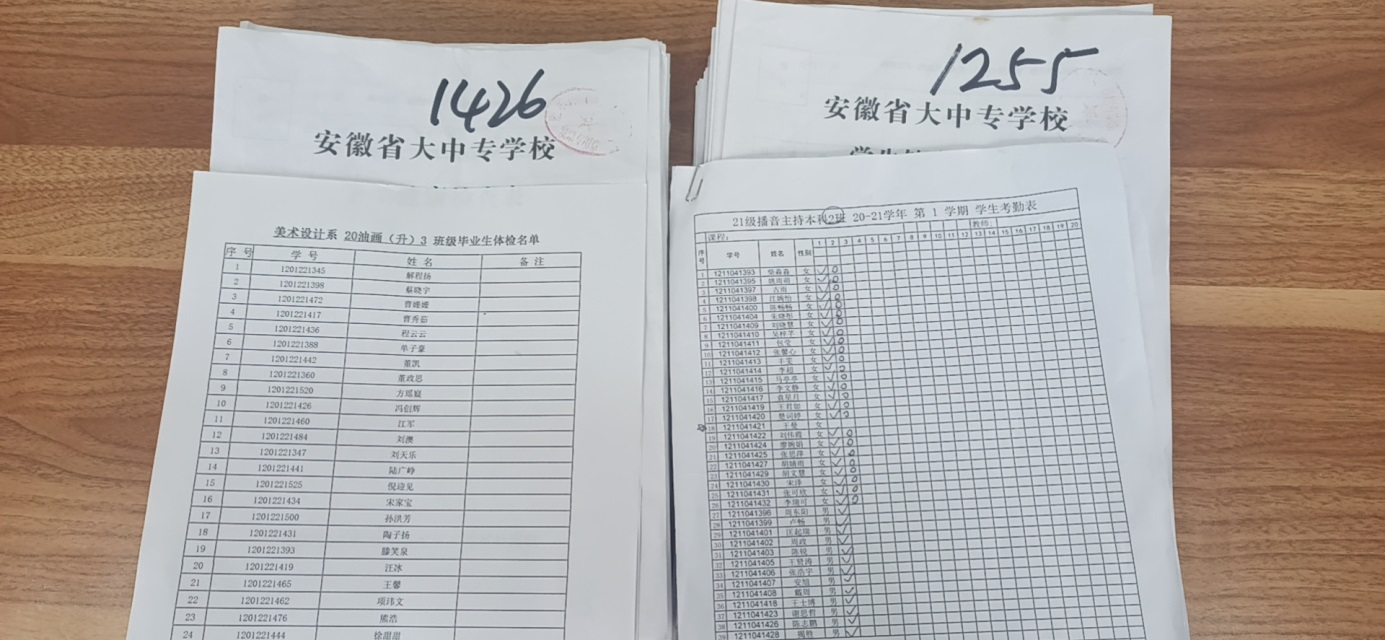 1426
安徽省大中专学校
美术设计系 20油画（升）3 班级毕业生体检名单
序 号 学 号 姓 名 备 注
1 1201221345 解程扬
2 1201221398 蔡晓宇
3 1201221472 曹媛媛
4 1201221417 曹秀茹
5 1201221436 程云云
6 1201221388 牟子豪
7 1201221442 董凯
8 1201221360 董政思
9 1201221520 方瑶庭
10 1201221426 冯创辉
11 1201221460 江军
12 1201221484 刘澳
13 1201221347 刘天乐
14 1201221441 陆广峥
15 1201221525 倪迎见
16 1201221434 宋家宝
17 1201221500 孙洪芳
18 1201221431 陶子扬
19 1201221393 滕笑泉
20 1201221419 汪冰
21 1201221465 王馨
22 1201221462 项玮文
23 1201221476 熊浩
24 1201221444 徐甜甜
1255
安徽省大中专学校
21级播音主持本科2班 20-21学年 第 1 学期 学生考勤表
课程： 教师：
序号 学号 姓名 性别 1 2 3 4 5 6 7 8 9 10 11 12 13 14 15 16 17 18 19 20
1 1211041393 女
2 1211041395 女
3 1211041397 女
4 1211041398 女
5 1211041400 女
6 1211041404 女
7 1211041409 刘晓慧 女
8 1211041410 女
9 1211041411 女
10 1211041412 张馨心 女
11 1211041413 女
12 1211041414 李超 女
13 1211041415 马亭亭 女
14 1211041416 李文静 女
15 1211041417 袁星月 女
16 1211041419 王君如 女
17 1211041420 女
18 1211041421 王曼 女
19 1211041422 刘伟霞 女
20 1211041424 廖晚娟 女
21 1211041425 张思萍 女
22 1211041427 女
23 1211041429 胡文慧 女
24 1211041430 宋泽 女
25 1211041431 张可欣 女
26 1211041432 李瑞可 女
27 1211041396 周东阳 男
28 1211041399 卢畅 男
29 1211041401 男
30 1211041402 周政 男
31 1211041403 陈锐 男
32 1211041405 王贤涛 男
33 1211041406 张浩宇 男
34 1211041407 安旭 男
35 1211041408 戴周 男
36 1211041418 王大博 男
37 1211041423 谢思哲 男
38 1211041426 陈志鹏 男
39 1211041428 男